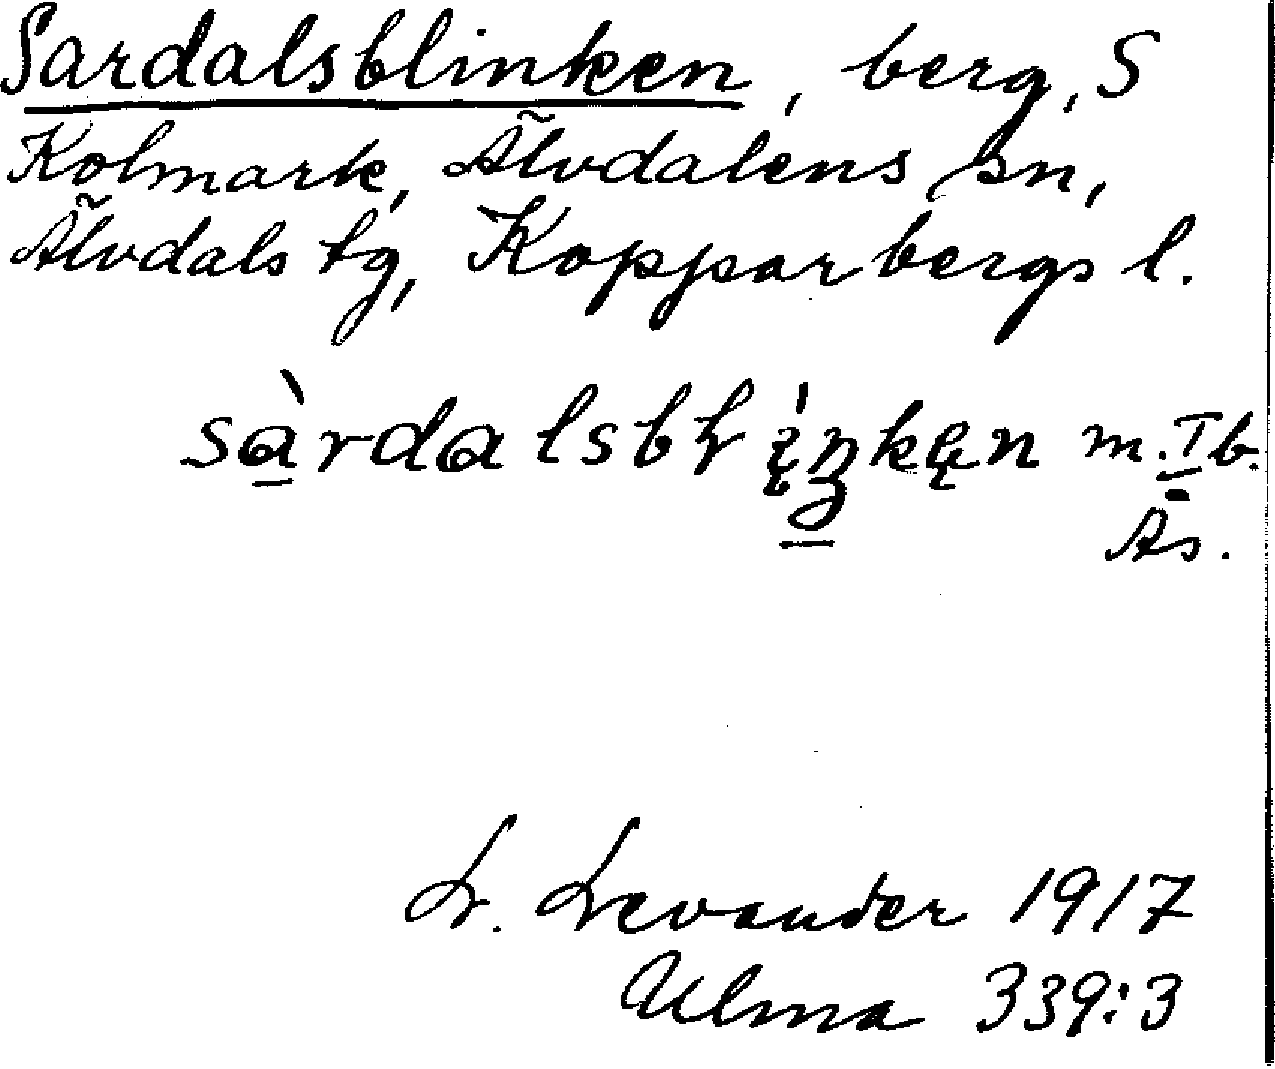 Sardalsblinken, berg, S
Kolmark, Älvdalens sn,
Älvdals tg, Kopparbergs l.
m. I b.
Ås.
L. Levander 1917
Ulma 339:3